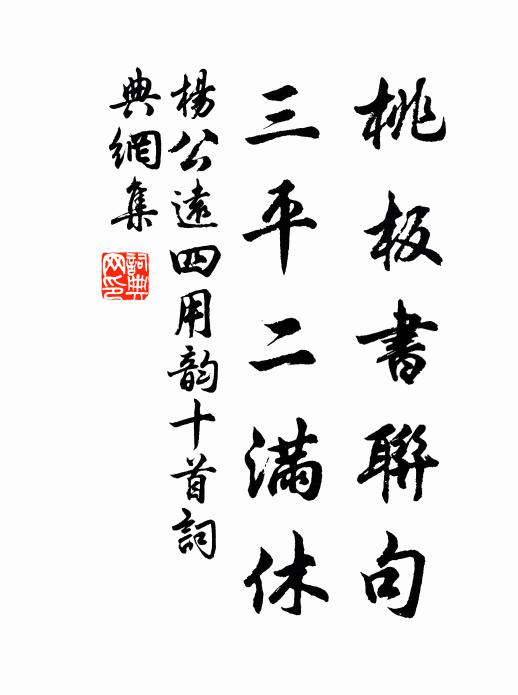 桃板書聯句
三平二滿休
楊公遠四用韵十首詞
典網集
詞典网印